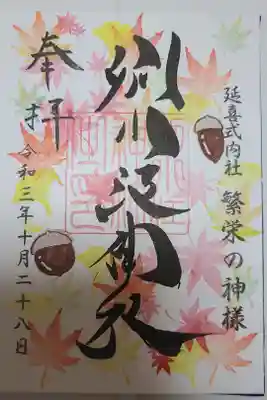 延喜式内社 繁栄の神様
別小江神社
奉拝
令和三年十月二十八日